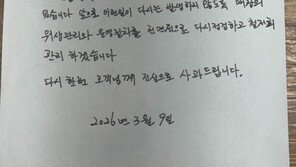 있습니다 앞으로 이런일이 다시는 발생하지 않도록 매장의
위생관리와 운영절차를 전면적으로 다시점검하고 철저히
관리 하겠습니다
다시 한번 고객님께 진심으로 사과드립니다.
2026년 3월 9일